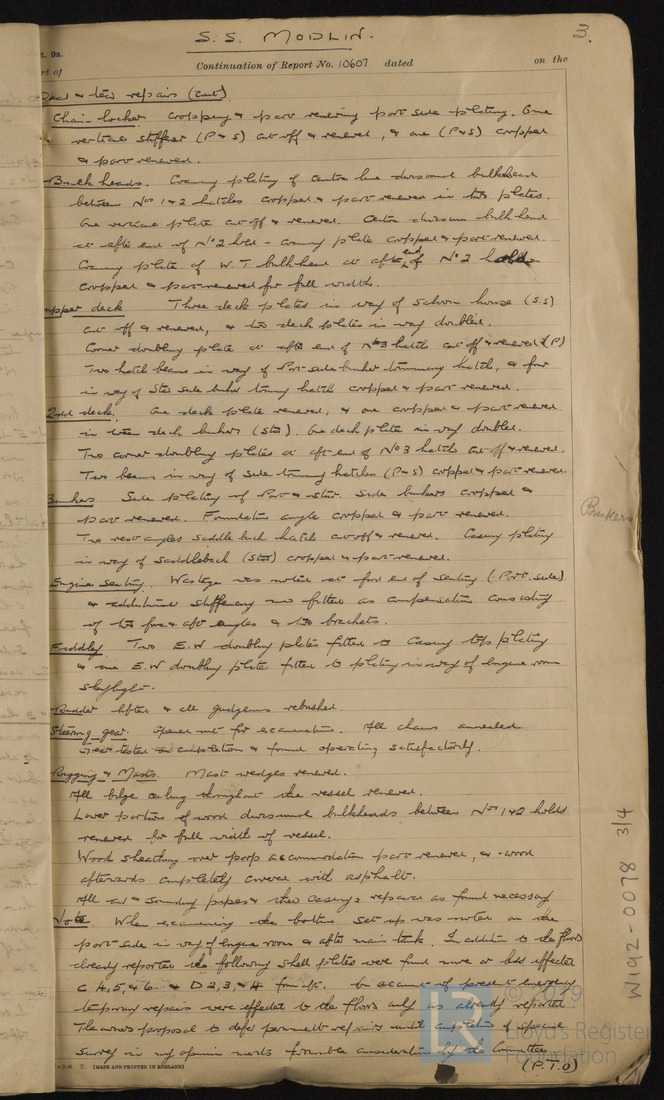 S.S. MODLIN.
3.
t. 9a.
rt of
Continuation of Report No. 10607 dated
on the
Wear & tear repairs (Cont).
Chain locker Cropping & part renewing port side plating. One
vertical stiffener (P & S) cut off & renewed, & one (P & S) cropped
& part renewed.
Bulkheads. Coaming plating of centre line divisional bulkhead
between Nos 1 & 2 hatches cropped & part renewed in two plates.
One vertical plate cut off & renewed. Centre division bulkhead
at after end of No 2 hold - coaming plate cropped & part renewed.
Coaming plate of W.T bulkhead at after end of No 2 hold
cropped & part renewed for full width.
upper deck Three deck plates in way of saloon house (S.S)
cut off & renewed, & two deck plates in way doubled.
Corner doubling plate at after end of No 3 hatch cut off & renewed (P)
Two hatch beams in way of Port side bunker trimming hatch, & four
in way of Star side bunker trimming hatch cropped & part renewed.
2nd deck. One deck plate renewed, & one cropped & part renewed
in tween deck bunkers (Star). One deck plate in way doubled.
Two corner doubling plates at aft end of No 3 hatch cut off & renewed.
Two beams in way of side trimming hatches (P & S) cropped & part renewed.
Bunkers Side plating of Port & star. Side bunkers cropped &
part renewed. Foundation angle cropped & part renewed.
Two rest angles saddle back hatch cut off & renewed. Casing plating
in way of saddleback (Star) cropped & part renewed.
Bunkers
Engine Seating. Wastage was noted at ford end of seating (Port. side)
& additional stiffening was fitted as compensation consisting
of two fore & aft angles & two brackets.
Fiddley. Two E.W doubling plates fitted to Casing top plating
& one E.W doubling plate fitted to plating in way of Engine room
skylight.
Rudder lifted & all gudgeons rebushed.
Steering gear. Opened out for examination. All chains annealed
Gear tested on completion & found operating satisfactorily.
Rigging & Masts. Mast wedges renewed.
All bilge ceiling throughout the vessel renewed.
Lower portion of wood divisional bulkheads between Nos 1 & 2 holds
renewed for full width of vessel.
Wood sheathing over poop accommodation part renewed, & wood
afterwards completely covered with asphalt.
All air & sounding pipes & their casings repaired as found necessary
Note. When examining the bottom set up was noted on the
port side in way of Engine room & after main tank. In addition to the floors
already reported the following shell plates were found more or less affected
C 4, 5, & 6 & D 2, 3, & 4 from aft. On account of present emergency
temporary repairs were effected to the floors only as already reported.
The owners proposal to defer permanent repairs until completion of special
survey in my opinion merits favourable consideration by the Committee
(P.T.O)
(MADE AND PRINTED IN ENGLAND)
W192-0078 3/4
© 2019
Lloyd's Register
Foundation